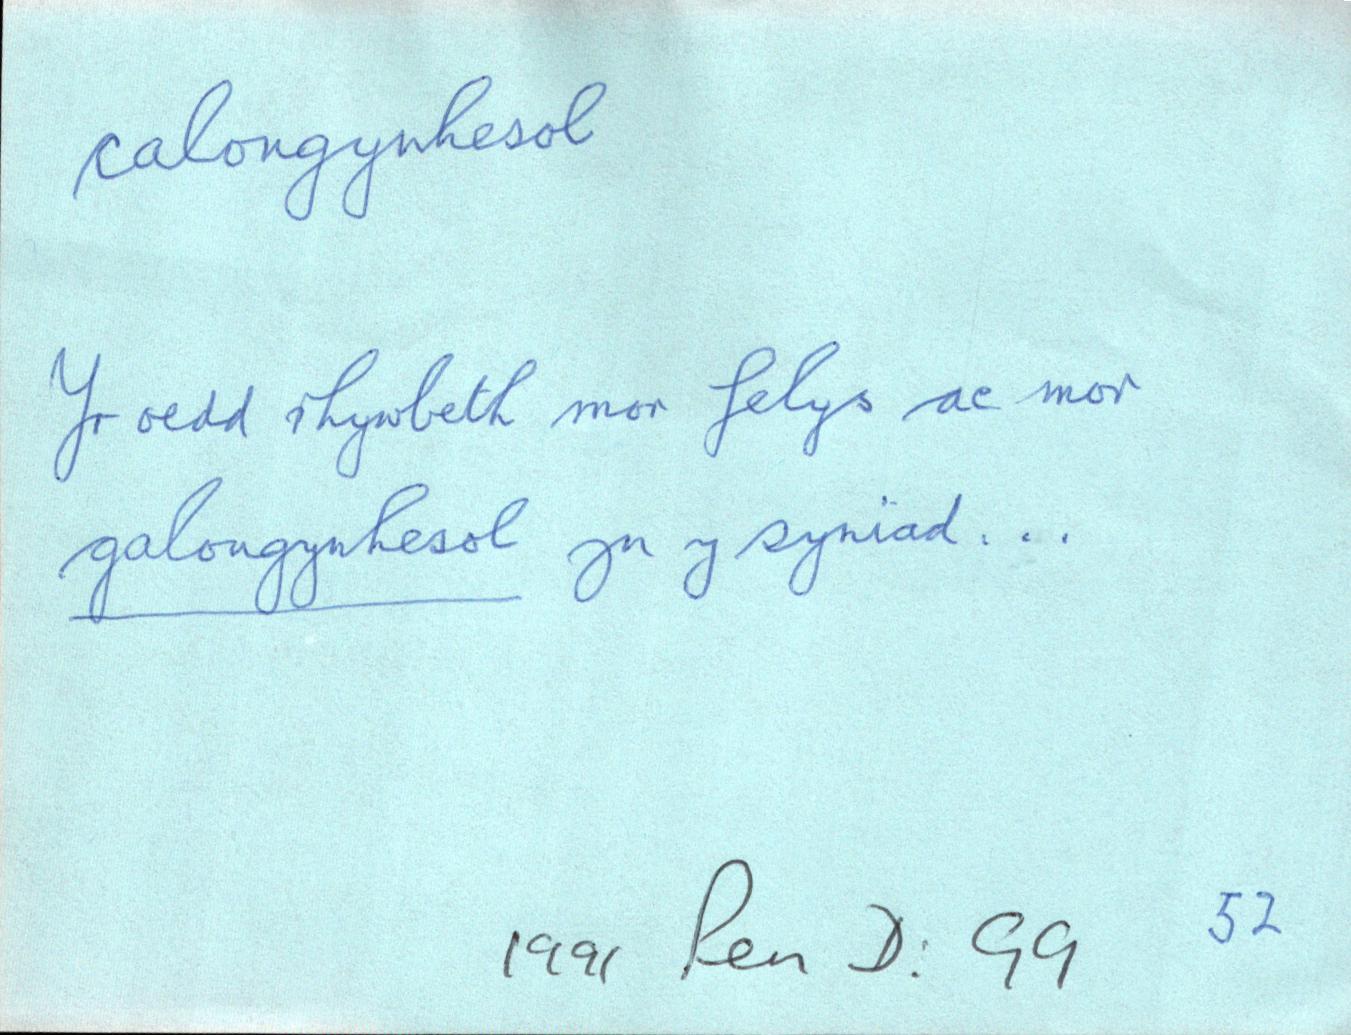 calongynhesol
Yr oedd rhywbeth mor felys ac mor
galongynhesol yn y syniad...
1991 Pen D: GG 52